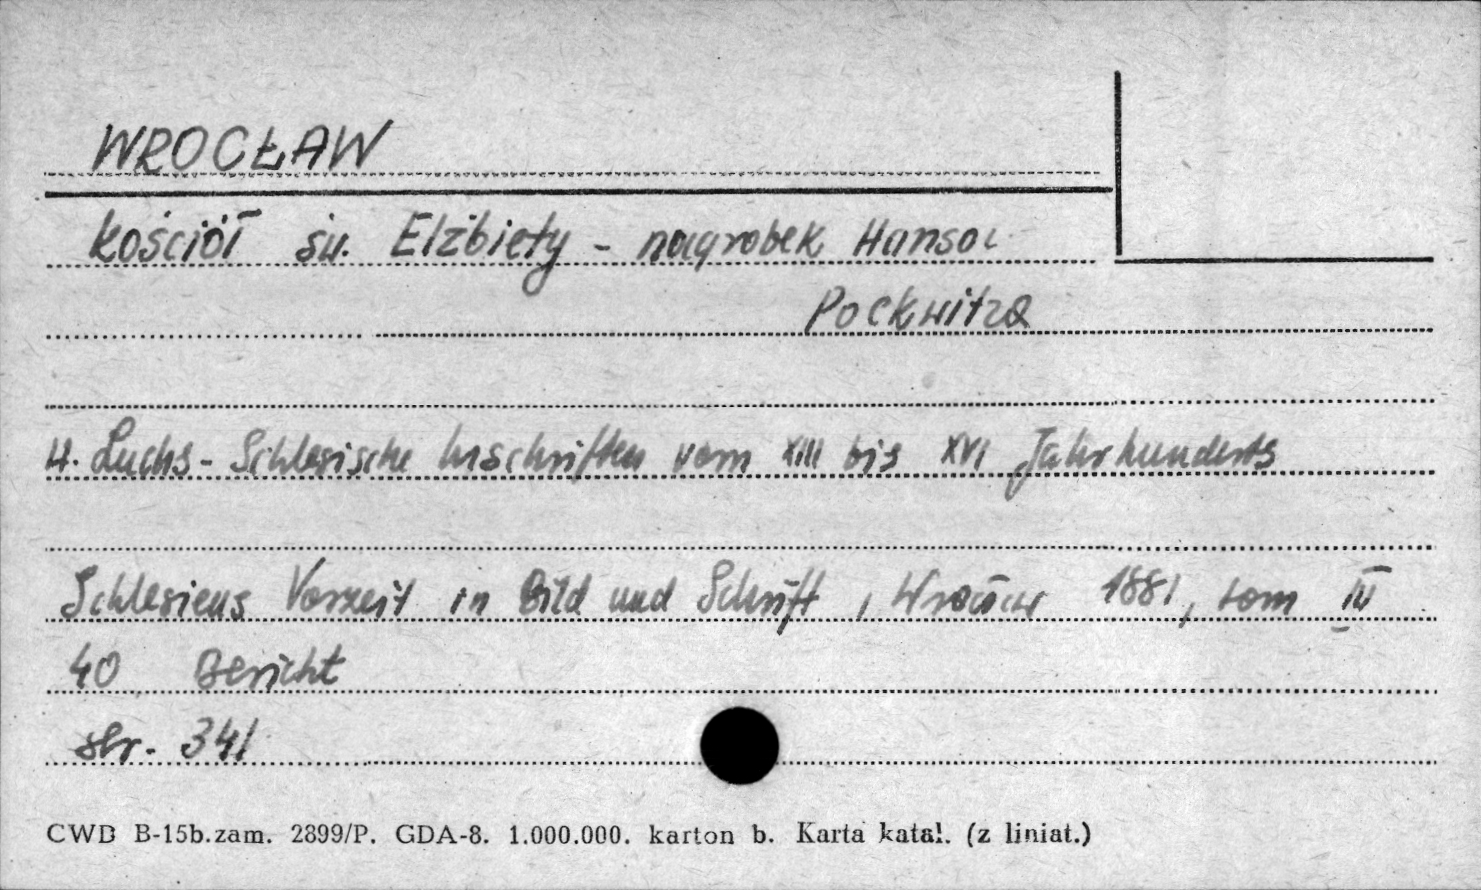 WROCŁAW
kościół św. Elżbiety - nagrobek Hansa
Pockwitza
H. Luchs - Schlesische Inschriften vom XIII bis XVI Jahrhunderts
Schlesiens Vorzeit in Bild und Schrift, Wrocław 1881, tom III
40 Bericht
str. 341
CWD B-15b.zam. 2899/P. GDA-8. 1.000.000. karton b. Karta katal. (z liniat.)